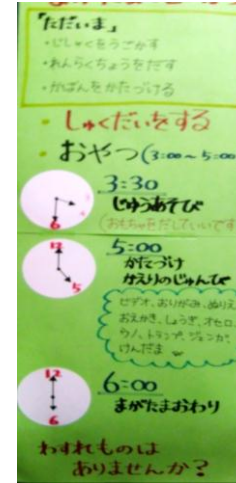 「ただいま」
・じしゃくをうごかす
・れんらくちょうをだす
・かばんをかたづける
・しゅくだいをする
・おやつ(3:00〜5:00
3:30
じゆうあそび
(おもちゃをだしていいです
6
5:00
かたづけ
かえりのじゅんび
12
5
ビデオ、おりがみ、ぬりえ
おえかき、しょうぎ、オセロ、
ウノ、トランプ、ジェンガ、
けんだま
6:00
まがたまおわり
12
6
わすれものは
ありませんか?